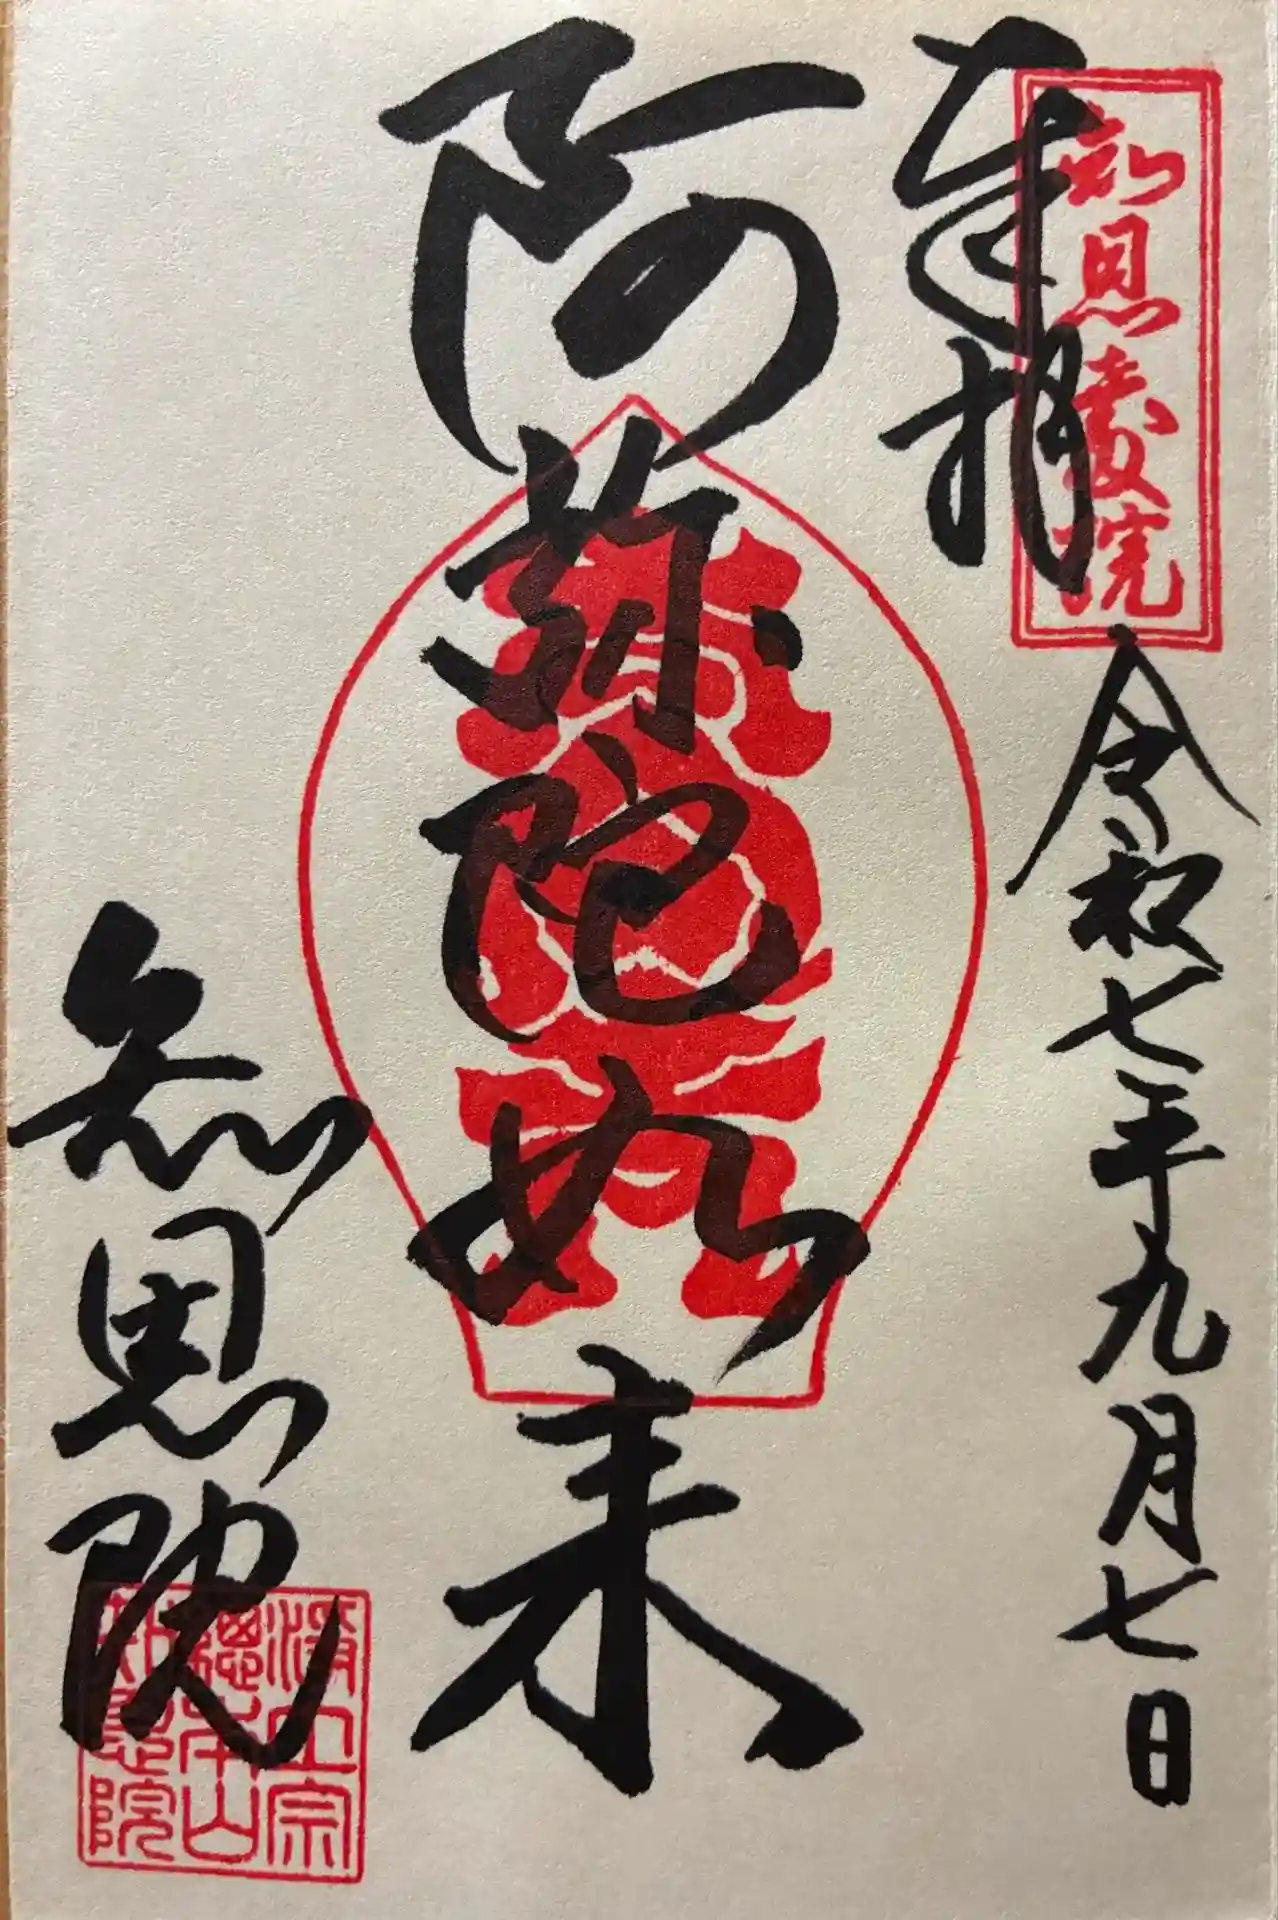 知恩教院
奉拝
令和七年九月七日
阿弥陀如来
知恩院
淨土宗
總本山
知恩院